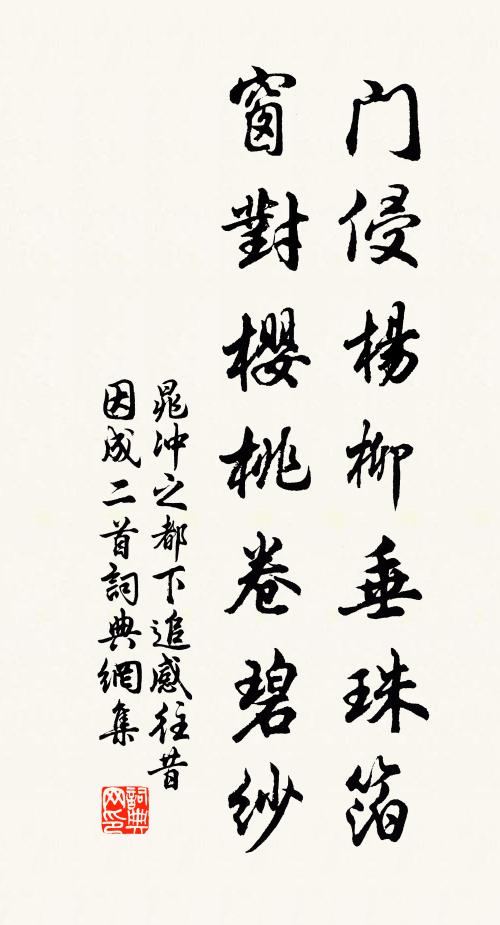 门侵楊柳垂珠箔
窗對櫻桃卷碧紗
晁冲之都下追感往昔
因成二首詞典網集
詞典网印